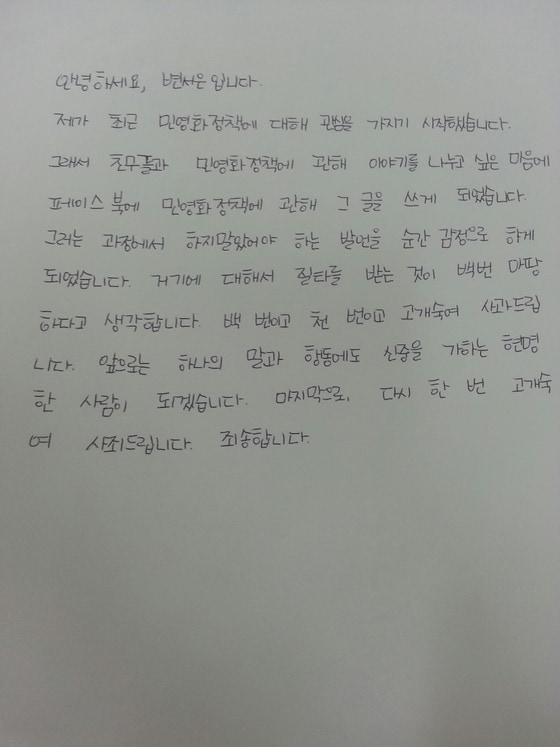 안녕하세요, 변서은 입니다.
제가 최근 민영화정책에 대해 관심을 가지기 시작했습니다.
그래서 친구들과 민영화정책에 관해 이야기를 나누고 싶은 마음에
페이스북에 민영화정책에 관해 그 글을 쓰게 되었습니다.
그러는 과정에서 하지말았어야 하는 발언을 순간 감정으로 하게
되었습니다. 거기에 대해서 질타를 받는 것이 백번 마땅
하다고 생각합니다. 백 번이고 천 번이고 고개숙여 사과드립
니다. 앞으로는 하나의 말과 행동에도 신중을 가하는 현명
한 사람이 되겠습니다. 마지막으로, 다시 한 번 고개숙
여 사죄드립니다. 죄송합니다.